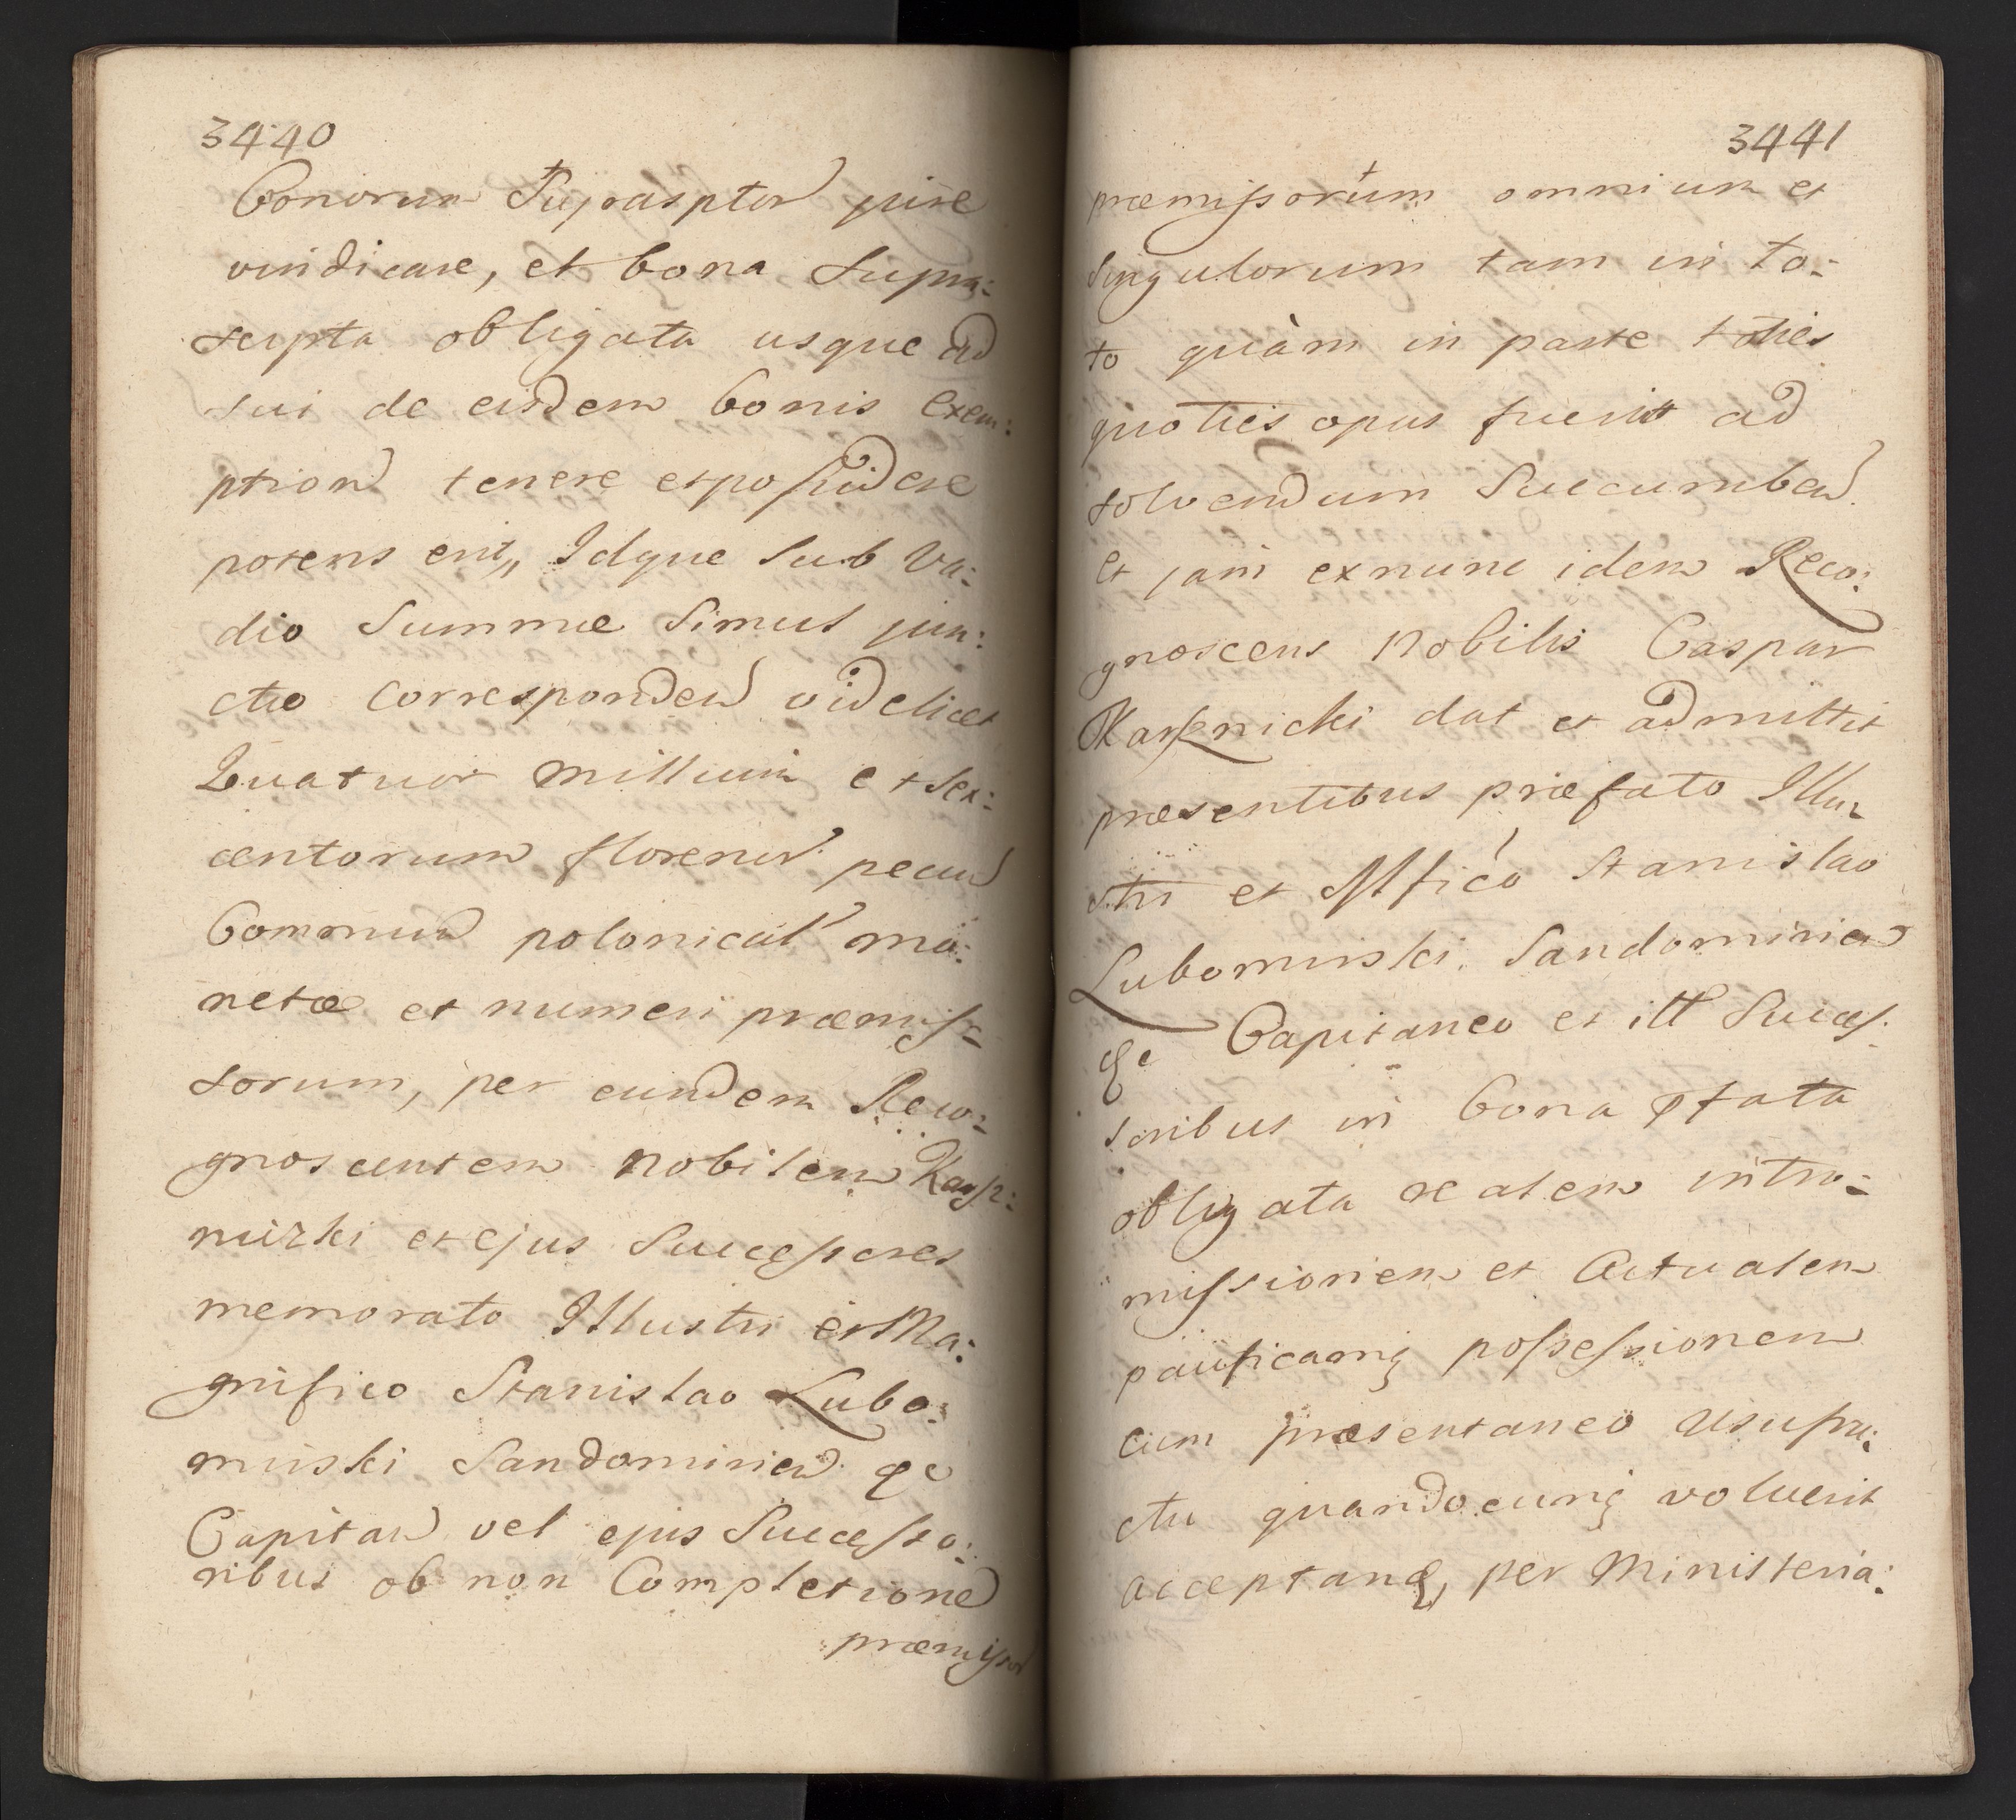 3440
Bonorum Suprasptor jure
vindicare, et bona supra:
scripta obligata usque ad
sui de eisdem bonis exem:
ption tenere et possidere
potens erit, Idque sub va:
dio Summæ simul jun:
ctæ Corresponden videlicet
Quatuor Millium et sex:
centorum floren pecun
Commun polonical mo:
netæ et numeri præmiss=
sorum, per eundem Reco:
gnoscentem Nobilem Karsz:
nicki et ejus Successores
memorato Illustri et Ma:
gnifico Stanislao Lubo:
mirski Sandomirien &c
Capitan vel ejus Successo:
ribus ob non Completione
præmissor
3441
præmissorum omnium et
singulorum tam in to:
to quàm in parte toties
quoties opus fuerit ad
solvendum Succumben
et jam exnunc idem Reco:
gnoscens Nobilis Caspar
Karsznicki dat et admittit
præsentibus præfato Illu
stri et Mfico Stanislao
Lubomirski Sandomirien
&c Capitaneo et ill Succes:
soribus in bona pfata
obligata realem intro=
missionem et Actualem
pacificamq possessionem
cum præsentaneo usufru:
ctu quandocunq voluerit
acceptand, per Ministeria: